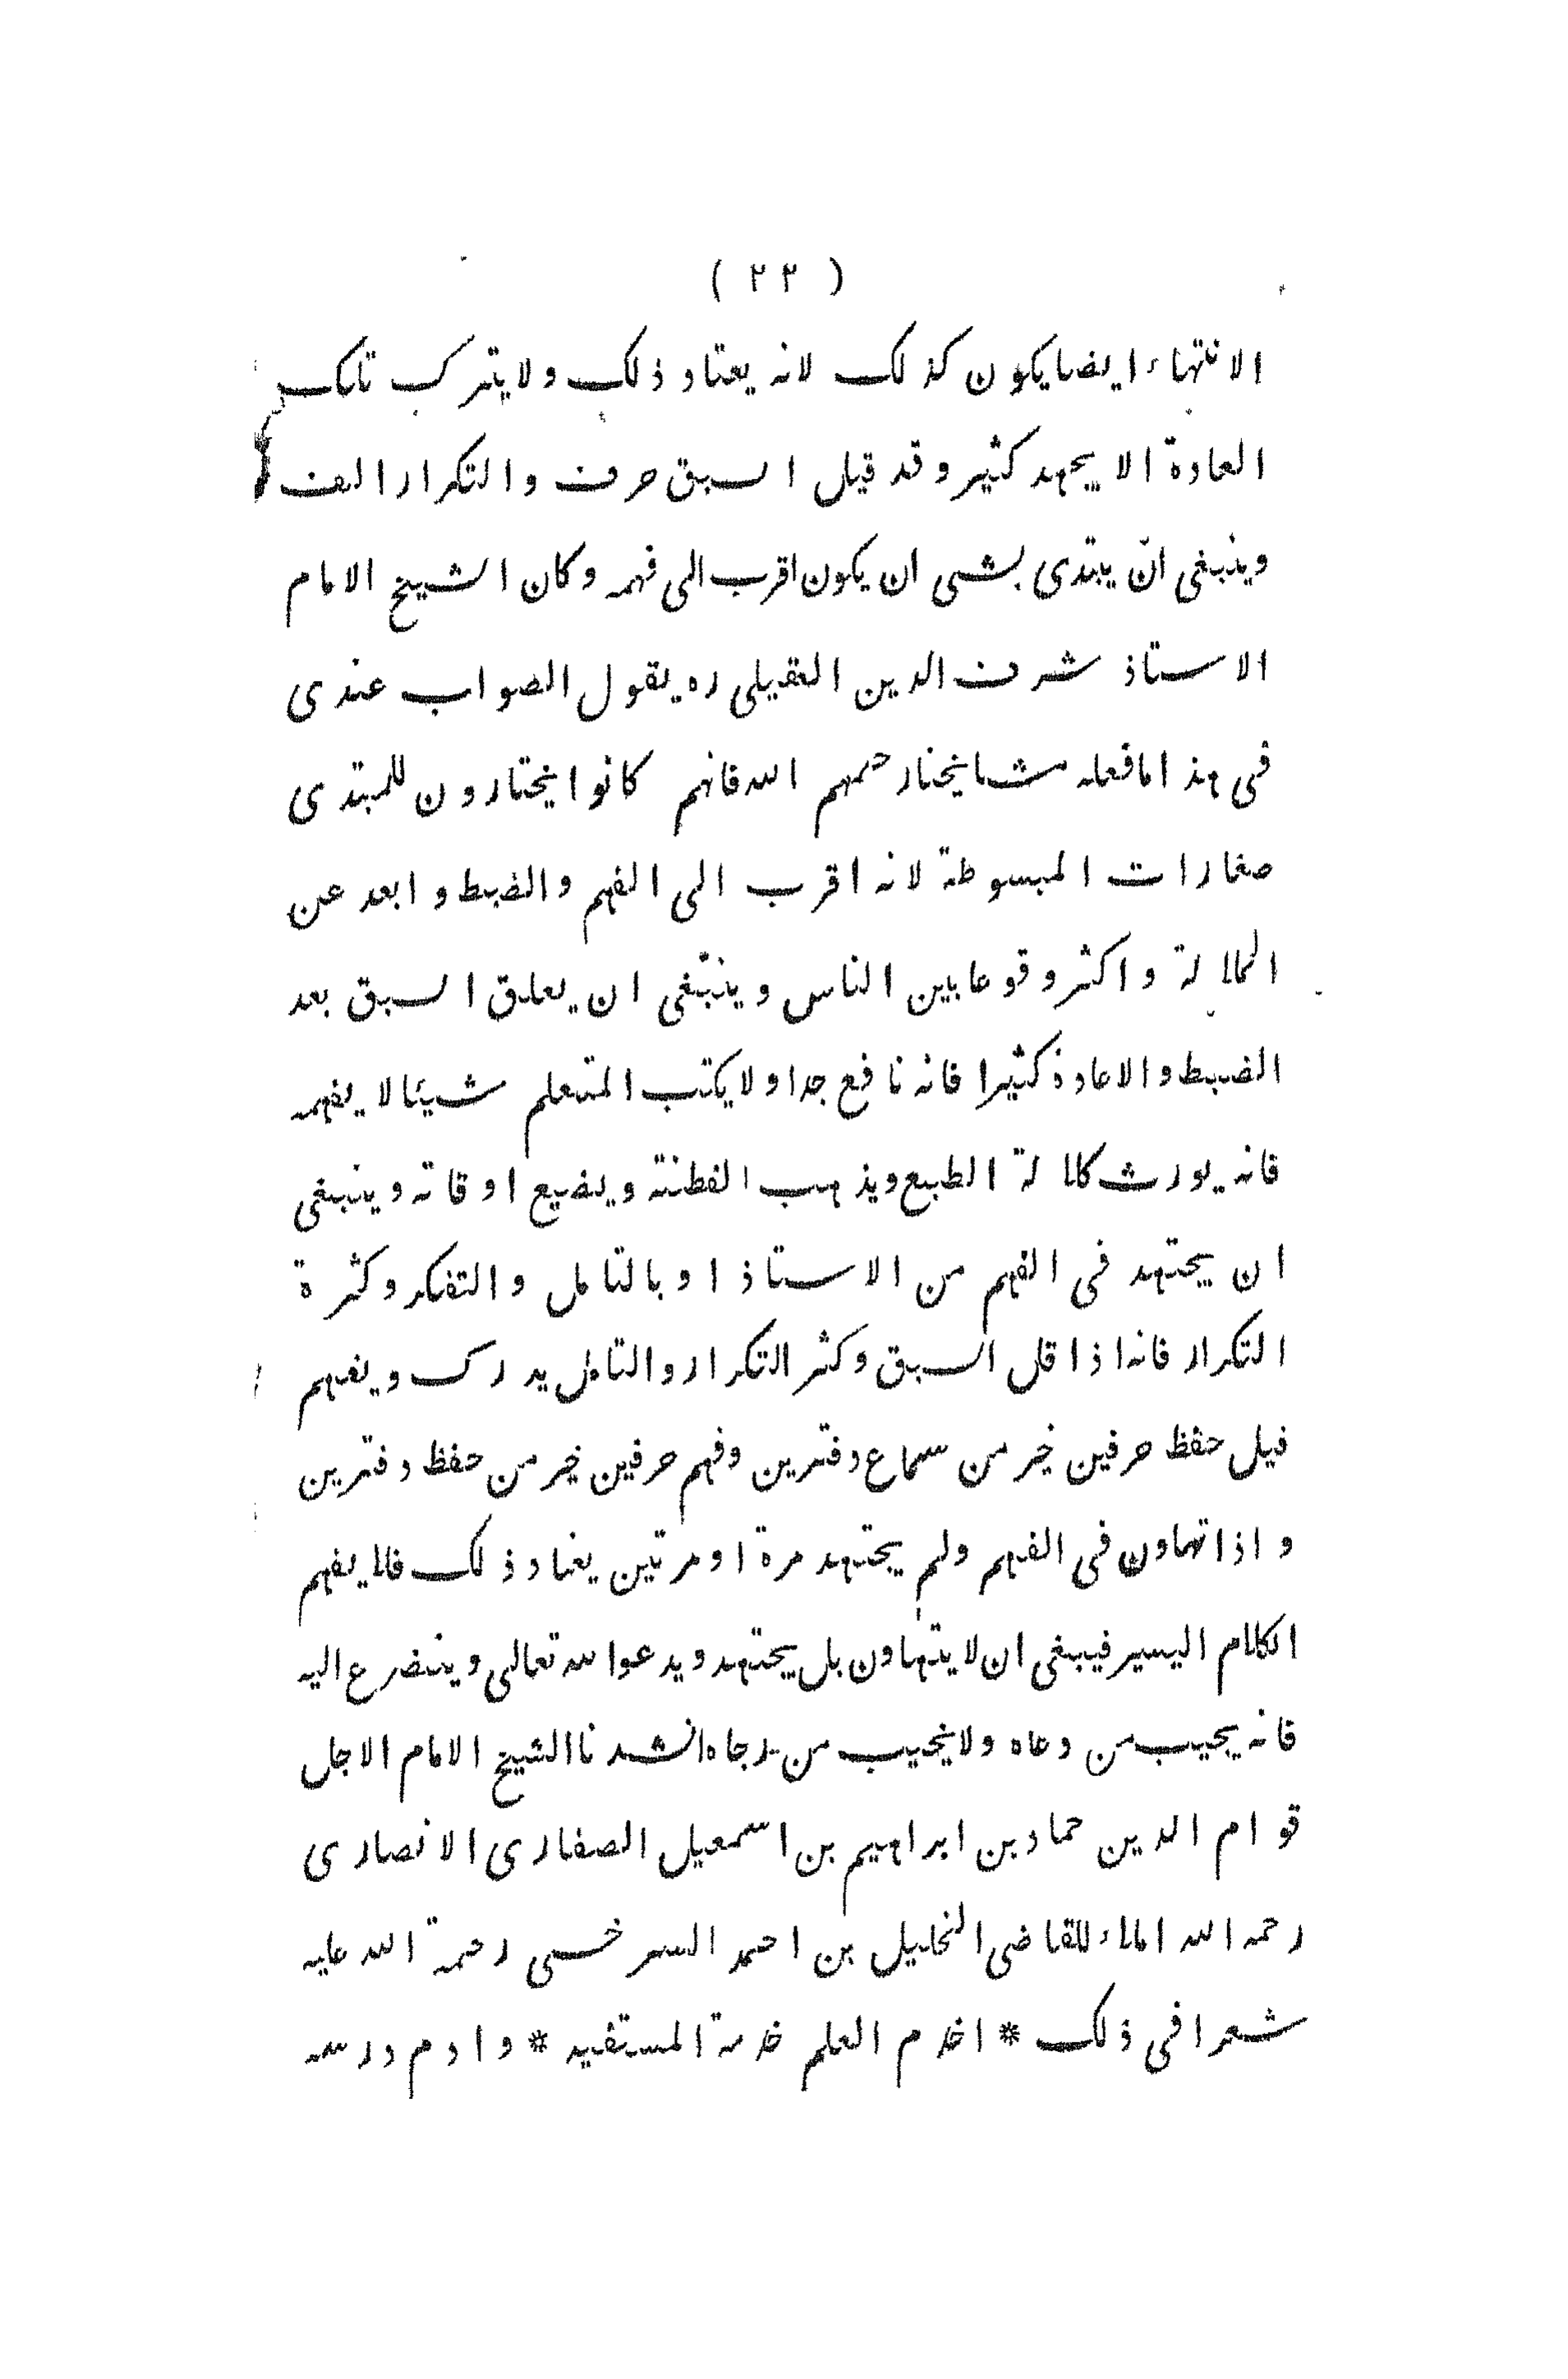 ( ٢٣ )
الانتهاء ايضا يكون كذلك لانه يعتاد ذلك ولا يترك تلك
العادة الا بجهد كثير وقد قيل السبق حرف والتكرار الف
وينبغى ان يبتدى بشى ان يكون اقرب الى فهمه وكان الشيخ الامام
الاستاذ شرف الدين العقيلى ره يقول الصواب عندى
فى هذا ما فعله مشايخنا رحمهم الله فانهم كانوا يختارون للمبتدى
صغارات المبسوطة لانه اقرب الى الفهم والضبط وابعد عن
الملالة واكثر وقوعا بين الناس وينبغى ان يعلق السبق بعد
الضبط والاعادة كثيرا فانه نافع جدا ولا يكتب المتعلم شيئا لا يفهمه
فانه يورث كلالة الطبع ويذهب الفطنة ويضيع اوقاته وينبغى
ان يجتهد فى الفهم من الاستاذ او بالتامل والتفكر وكثرة
التكرار فانه اذا قل السبق وكثر التكرار والتامل يدرك ويفهم
قيل حفظ حرفين خير من سماع دفترين وفهم حرفين خير من حفظ دفترين
واذا تهاون فى الفهم ولم يجتهد مرة او مرتين يعتاد ذلك فلا يفهم
الكلام اليسير فينبغى ان لا يتهاون بل يجتهد ويدعو الله تعالى ويتضرع اليه
فانه يجيب من دعاه ولا يخيب من رجاه انشدنا الشيخ الامام الاجل
قوام الدين حماد بن ابراهيم بن اسمعيل الصفارى الانصارى
رحمه الله املاء للقاضى الخليل بن احمد السرخسى رحمة الله عليه
شعرا فى ذلك * اخدم العلم خدمة المستفيد * وادم درسه